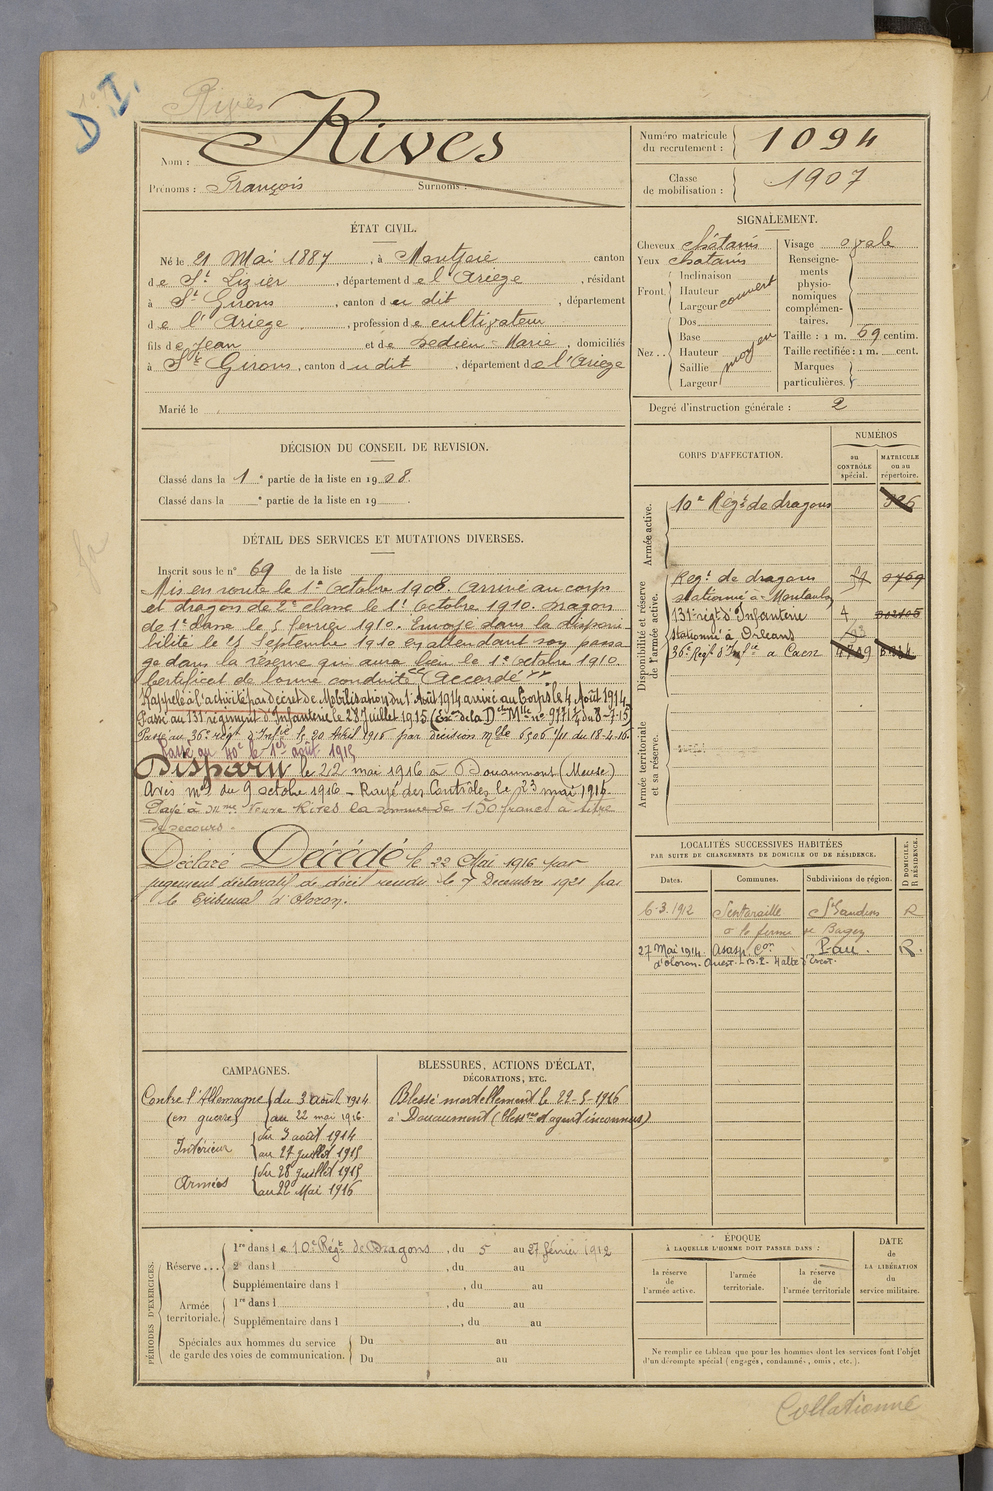 D. I.
Rives
Nom : Rives
Prénoms : François Surnoms :
Numéro matricule du recrutement : 1094
Classe de mobilisation : 1907
ÉTAT CIVIL.
Né le 21 Mai 1887, à Montjoie canton
de St Lizier, département de l'Ariège, résidant
à St Girons, canton du dit, département
de l'Ariege, profession de cultivateur
fils de Jean et de Sedien - Marie, domiciliés
à St Girons, canton du dit, département de l'Ariege
Marié le
SIGNALEMENT.
Cheveux châtains
Yeux chatains
Front Inclinaison
Hauteur couvert
Largeur
Nez.. Dos
Base
Hauteur moyen
Saillie
Largeur
Visage ovale
Renseignements physionomiques complémentaires.
Taille : 1 m. 69 centim.
Taille rectifiée : 1 m. cent.
Marques particulières.
Degré d'instruction générale : 2
DÉCISION DU CONSEIL DE REVISION.
Classé dans la 1e partie de la liste en 1908.
Classé dans la e partie de la liste en 19 .
DÉTAIL DES SERVICES ET MUTATIONS DIVERSES.
Inscrit sous le n° 69 de la liste
Mis en route le 1er Octobre 1908. Arrivé au corps
et dragon de 2e classe le 1er Octobre 1910. Dragon
de 1e classe le 5 fevrier 1910. Envoyé dans la disponi-
bilité le 25 Septembre 1910 en attendant son passa
ge dans la réserve qui aura lieu le 1er Octobre 1910.
Certificat de bonne conduite "Accordé"
Rappelé à l'activité par décret de Mobilisation du 1er Août 1914 arrivé au Corps le 4 Août 1914
Passé au 131 régiment d'Infanterie le 28 Juillet 1915
Passé au 36e régt d'Infrie le 20 Avril 1916 par décision mlle 6506 1/11 du 18-4-16
Passé au 40e le 1er août 1915
Disparu le 22 mai 1916 à Douaumont (Meuse)
Avis mel du 9 octobre 1916 - Rayé des Contrôles le 23 mai 1916
Payé à Mme Veuve Rives la somme de 150 francs à titre
de secours.
Déclaré Décédé le 22 Mai 1916 par
jugement déclaratif de décès rendu le 7 Decembre 1921 par
le Tribunal d'Oloron.
CORPS D'AFFECTATION.
NUMÉROS
DU CONTRÔLE spécial.
MATRICULE ou au répertoire.
Armée active.
10e Régt de dragons
Disponibilité et réserve de l'armée active.
Regt de dragons
stationné à Montauban
131e régt d'Infanterie 4
stationné à Orléans
36e Régt d'Infie à Caen
Armée territoriale et sa réserve.
LOCALITÉS SUCCESSIVES HABITÉES
PAR SUITE DE CHANGEMENTS DE DOMICILE OU DE RÉSIDENCE.
Dates. Communes. Subdivisions de région. D DOMICILE. R RÉSIDENCE.
6-3.1912 Sentaraille St Gaudens R
27 Mai 1914. Asasp Con Pau. R.
CAMPAGNES.
Contre l'Allemagne du 3 août 1914
(en guerre) au 22 mai 1916.
Intérieur du 3 août 1914
au 27 juillet 1915
Armées du 28 juillet 1915
au 22 Mai 1916
BLESSURES, ACTIONS D'ÉCLAT,
DÉCORATIONS, ETC.
Blessé mortellement le 22-5-1916
à Douaumont (blessre et agent inconnus)
PÉRIODES D'EXERCICES.
Réserve... 1re dans le 10e Régt de Dragons, du 5 au 27 février 1912
2e dans l , du au
Supplémentaire dans l , du au
Armée territoriale. 1re dans l , du au
Supplémentaire dans l , du au
Spéciales aux hommes du service de garde des voies de communication. Du au
Du au
ÉPOQUE
À LAQUELLE L'HOMME DOIT PASSER DANS :
la réserve de l'armée active.
l'armée territoriale.
la réserve de l'armée territoriale
DATE DE LA LIBÉRATION du service militaire.
Ne remplir ce tableau que pour les hommes dont les services font l'objet
d'un décompte spécial (engagés, condamnés, omis, etc.).
Collationné